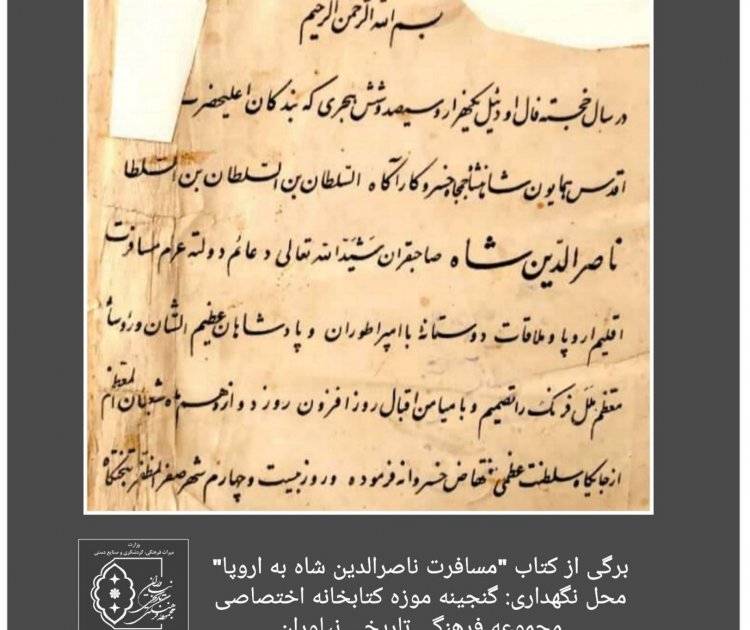 بسم الله الرحمن الرحیم
در سال خجسته فال اودئیل یکهزار و سیصد و شش هجری که بندگان اعلیحضرت
اقدس همایون شاهنشاه جمجاه خسرو کارآگاه السلطان بن السلطان بن السلطا
ناصرالدین شاه صاحبقران شَیَّدَ الله تعالی دعائم دولته عزم مسافرت
اقلیم اروپا و ملاقات دوستانهٔ با امپراطوران و پادشاهان عظیم الشان و رؤسا
معظم ملل فرنک را تصمیم و با میامن اقبال روز افزون روز دوازدهم ماه شعبان المعظم
از جایکاه سلطنت عظمی نهضا خسروانه فرموده و روز بیست و چهارم شهر صفر المظفر بتختکاه
وزارت
میراث فرهنگی، گردشگری و صنایع دستی
برگی از کتاب "مسافرت ناصرالدین شاه به اروپا"
محل نگهداری: گنجینه موزه کتابخانه اختصاصی
مجموعه فرهنگی تاریخی نیاوران